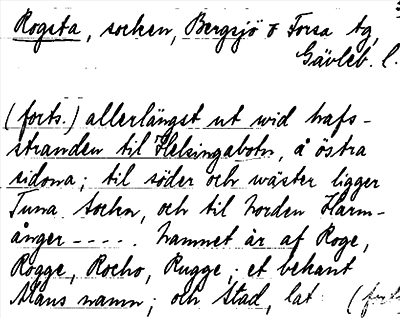 Rogsta, socken, Bergsjö o Forsa tg,
Gävleb. l.
(forts.) allerlängst ut wid hafs-
stranden til Helsingabotn, å östra
sidona; til söder och wäster ligger
Tuna Sockn, och til Norden Harm-
ånger-----. Namnet är af Roge,
Rogge, Rocho, Rugge, et bekant
Mans namn; och Stad, lat (forts